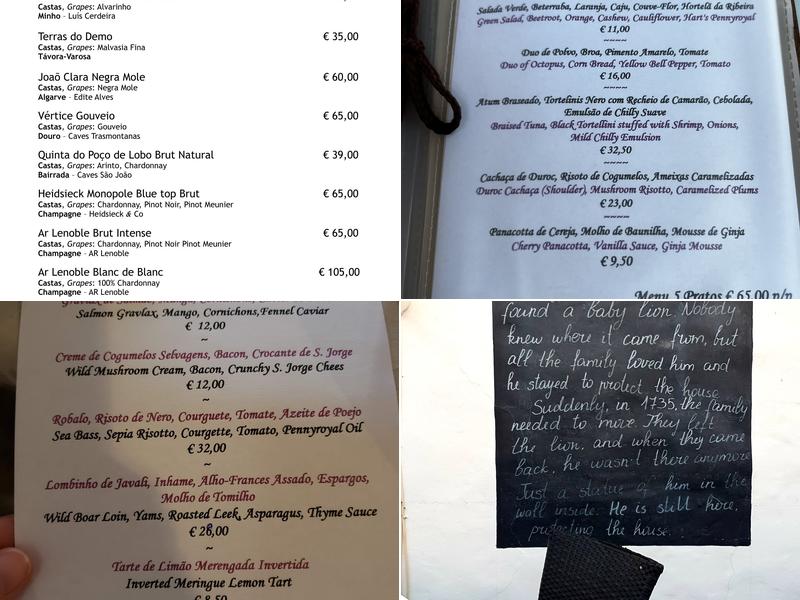 Castas, Grapes: Alvarinho
Minho – Luis Cerdeira
Terras do Demo € 35,00
Castas, Grapes: Malvasia Fina
Távora-Varosa
Joaõ Clara Negra Mole € 60,00
Castas, Grapes: Negra Mole
Algarve – Edite Alves
Vértice Gouveio € 65,00
Castas, Grapes: Gouveio
Douro – Caves Trasmontanas
Quinta do Poço de Lobo Brut Natural € 39,00
Castas, Grapes: Arinto, Chardonnay
Bairrada – Caves São João
Heidsieck Monopole Blue top Brut € 65,00
Castas, Grapes: Chardonnay, Pinot Noir, Pinot Meunier
Champagne – Heidsieck & Co
Ar Lenoble Brut Intense € 65,00
Castas, Grapes: Chardonnay, Pinot Noir Pinot Meunier
Champagne – AR Lenoble
Ar Lenoble Blanc de Blanc € 105,00
Castas, Grapes: 100% Chardonnay
Champagne – AR Lenoble
Salada Verde, Beterraba, Laranja, Caju, Couve-Flor, Hortelã da Ribeira
Green Salad, Beetroot, Orange, Cashew, Cauliflower, Hart's Pennyroyal
€ 11,00
~~~~
Duo de Polvo, Broa, Pimento Amarelo, Tomate
Duo of Octopus, Corn Bread, Yellow Bell Pepper, Tomato
€ 16,00
~~~~
Atum Braseado, Tortelinis Nero com Recheio de Camarão, Cebolada,
Emulsão de Chilly Suave
Braised Tuna, Black Tortellini stuffed with Shrimp, Onions,
Mild Chilly Emulsion
€ 32,50
~~~~
Cachaça de Duroc, Risoto de Cogumelos, Ameixas Caramelizadas
Duroc Cachaça (Shoulder), Mushroom Risotto, Caramelized Plums
€ 23,00
~~~~
Panacotta de Cereja, Molho de Baunilha, Mousse de Ginja
Cherry Panacotta, Vanilla Sauce, Ginja Mousse
€ 9,50
Menu 5 Pratos € 65,00 p/p
Salmon Gravlax, Mango, Cornichons,Fennel Caviar
€ 12,00
~
Creme de Cogumelos Selvagens, Bacon, Crocante de S. Jorge
Wild Mushroom Cream, Bacon, Crunchy S. Jorge Chees
€ 12,00
~
Robalo, Risoto de Nero, Courguete, Tomate, Azeite de Poejo
Sea Bass, Sepia Risotto, Courgette, Tomato, Pennyroyal Oil
€ 32,00
~
Lombinho de Javali, Inhame, Alho-Frances Assado, Espargos,
Molho de Tomilho
Wild Boar Loin, Yams, Roasted Leek, Asparagus, Thyme Sauce
€ 28,00
~
Tarte de Limão Merengada Invertida
Inverted Meringue Lemon Tart
€ 8,50
found a baby lion. Nobody
knew where it came from, but
all the family loved him and
he stayed to protect the house
Suddenly, in 1735, the family
needed to move. They left
the lion. and when they came
back, he wasn't there anymore
Just a statue of him in the
wall inside. He is still here,
protecting the house.